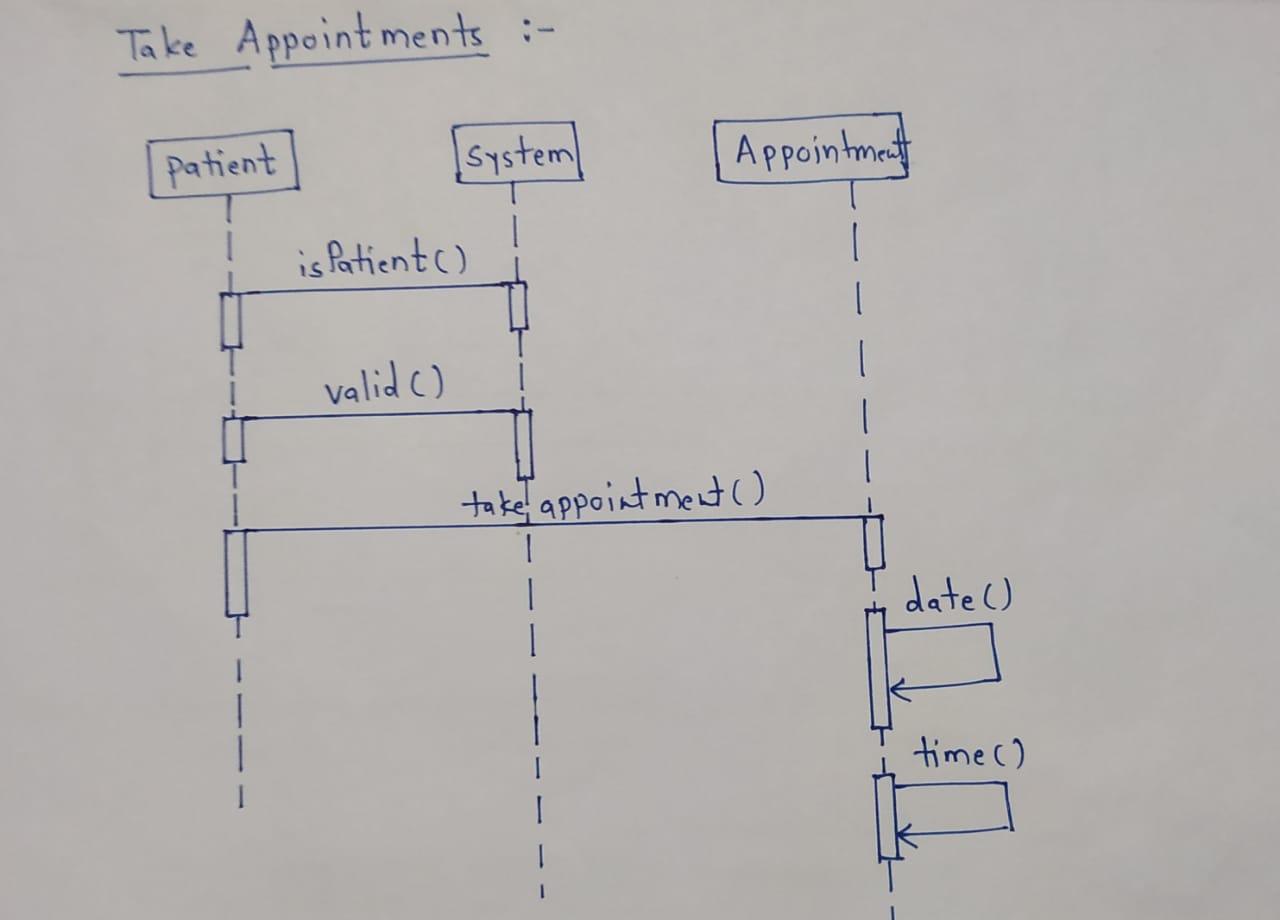 Take Appointments :-
Patient
System
Appointment
isPatient()
valid()
take appointment()
date()
time()